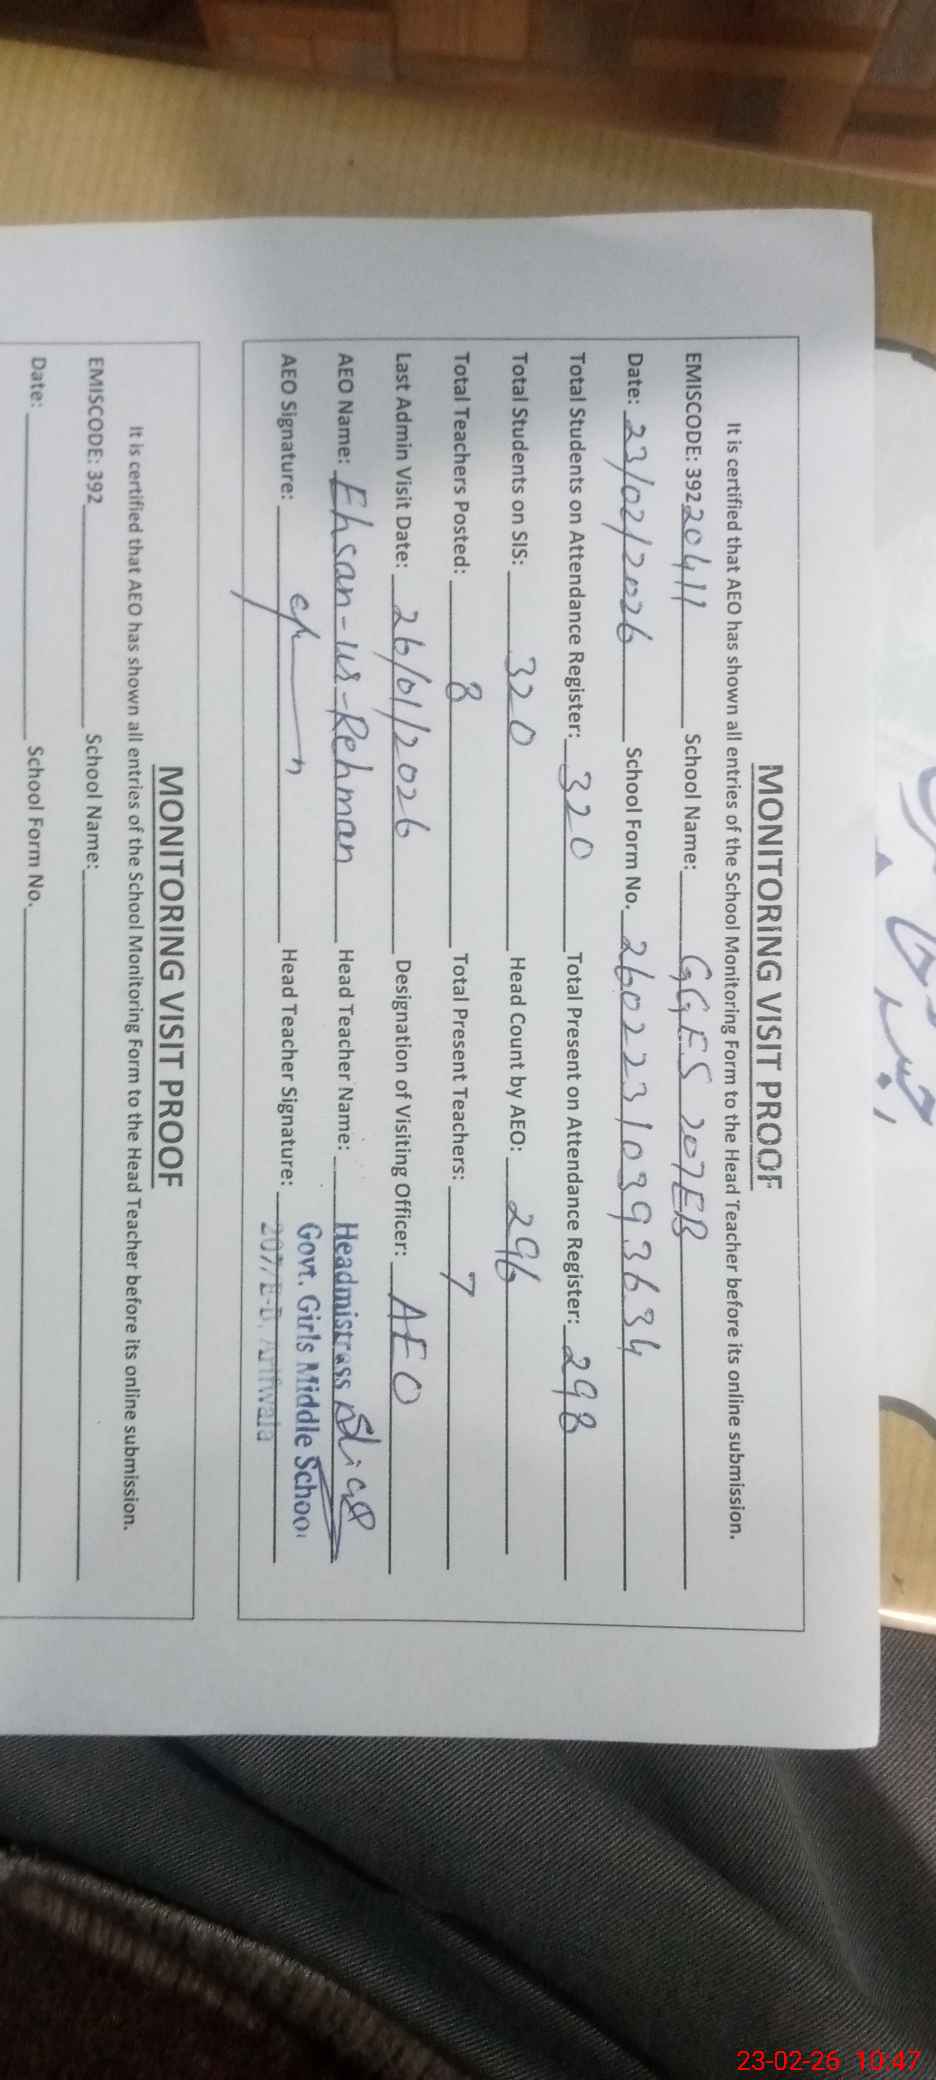 MONITORING VISIT PROOF
It is certified that AEO has shown all entries of the School Monitoring Form to the Head Teacher before its online submission.
EMISCODE: 39220411 School Name: GGES 207EB
Date: 23/02/2026 School Form No. 26022310393634
Total Students on Attendance Register: 320 Total Present on Attendance Register: 298
Total Students on SIS: 320 Head Count by AEO: 296
Total Teachers Posted: 8 Total Present Teachers: 7
Last Admin Visit Date: 26/01/2026 Designation of Visiting Officer: AEO
AEO Name: Ehsan-ur-Rehman Head Teacher Name: Headmistress
Govt. Girls Middle School
AEO Signature: Head Teacher Signature: 207/E-B, Arifwala
MONITORING VISIT PROOF
It is certified that AEO has shown all entries of the School Monitoring Form to the Head Teacher before its online submission.
EMISCODE: 392 School Name:
Date: School Form No.
23-02-26 10:47